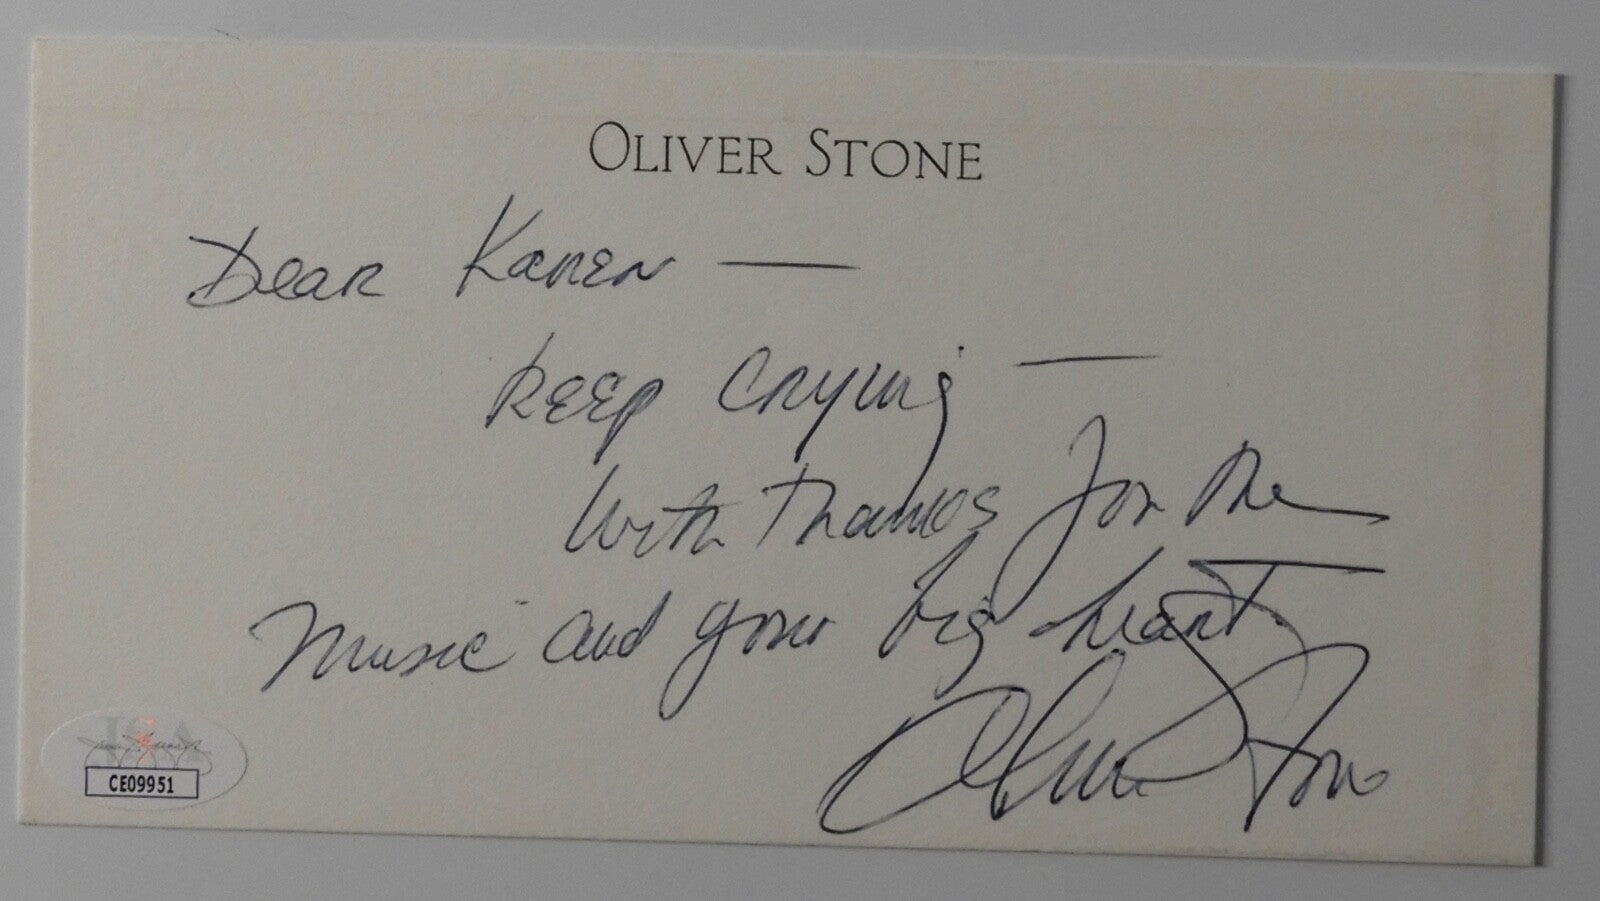 OLIVER STONE
Dear Karen —
Keep crying —
With thanks for the
music and your big heart.
Oliver Stone
JSA
CE09951